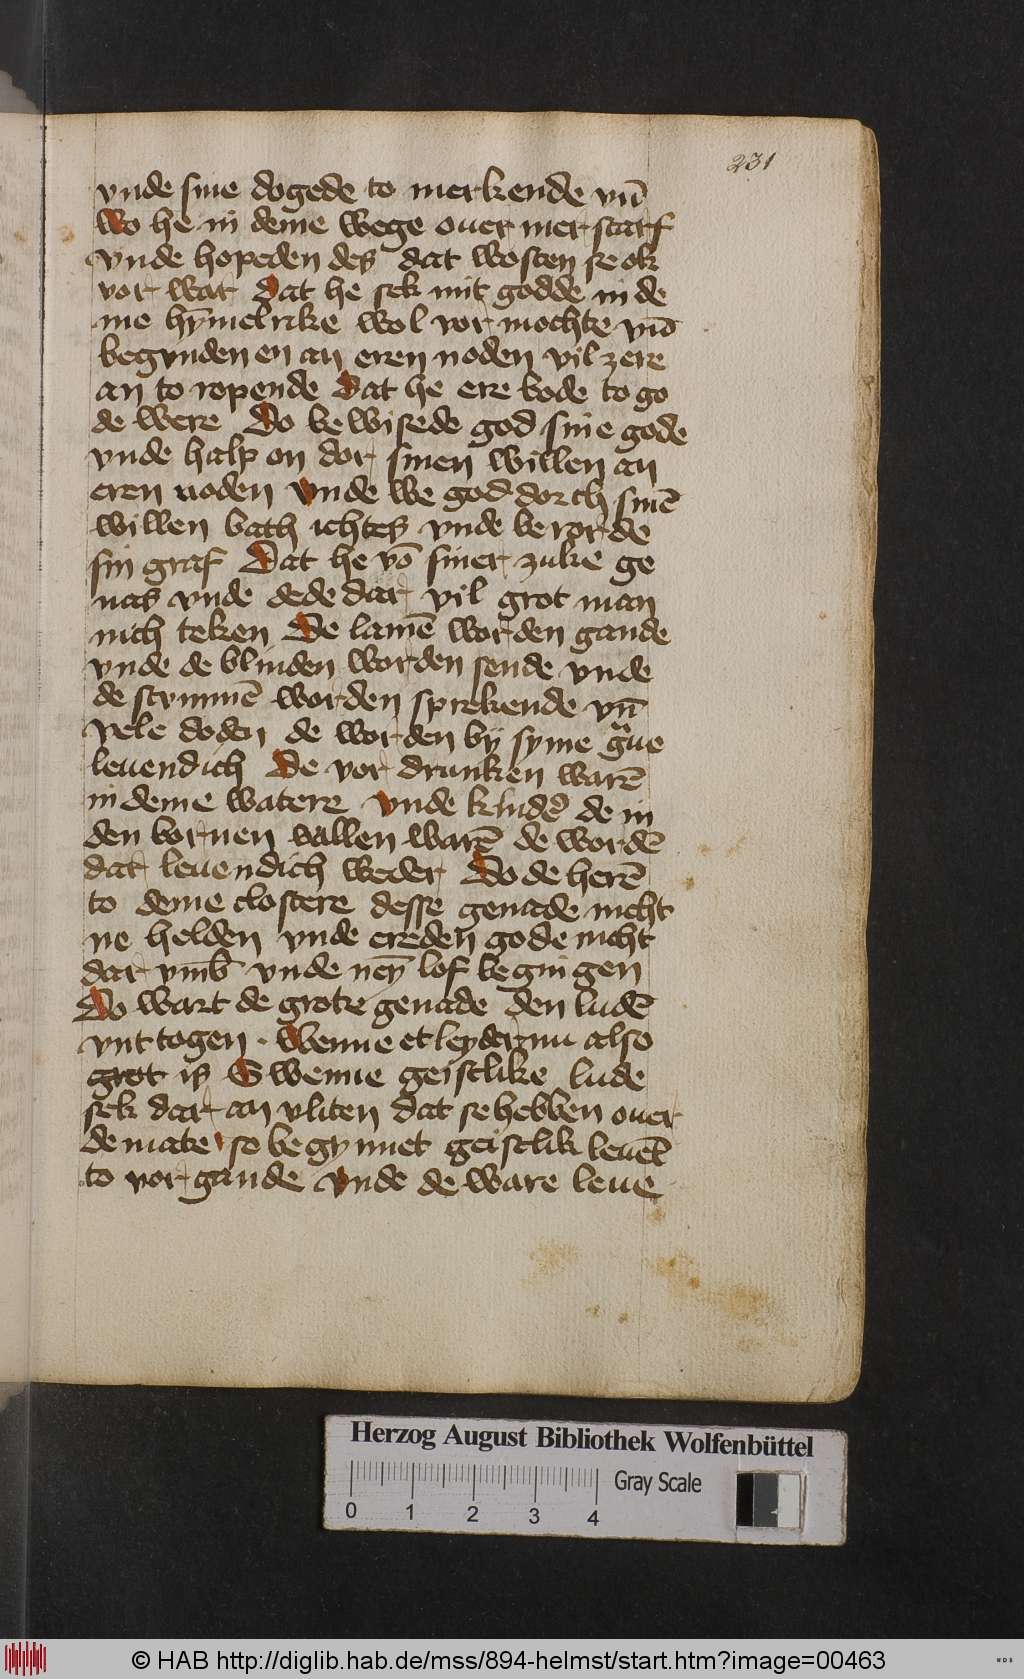 231
vnde sine dogede to merkende vn̄
wo he in deme wege ouer mer starf
vnde hopeden des dat wosten se ok
vor war dat he sek mit godde in de
me hȳmelrike wol vor mochte vn̄
begynden en an eren noden vil zere
an to ropende dat he ere bode to go
de were Do bewisede god sine gode
vnde halp on dor sinen willen an
eren noden vnde we god dorch sinē
willen bath ichtes vnde berorde
sin graf Dat he vō siner zuke ge
nas vnde dede dar vil grot man
nich teken De lamē worden gande
vnde de blinden worden sende vnde
de stummē worden sprekende vn̄
vele doden de worden by syme graue
leuendich De vor drunken warē
in deme watere vnde kindē de in
den bornen vallen warē de wordē
dar leuendich weder Do de herē
to deme clostere desse genade nicht
ne helden vnde ereden gode nicht
dar vmb̄ vnde neȳ lof begingen
Do wart de grote genade den ludē
vnt togen . wenne et leyder nu also
grot is Swenne geistlike lude
sek dar an vliten dat se hebben ouer
de mate so begynnet geistlik leuēt
to vor gande vnde de ware leue
Herzog August Bibliothek Wolfenbüttel
Gray Scale
0 1 2 3 4
© HAB http://diglib.hab.de/mss/894-helmst/start.htm?image=00463